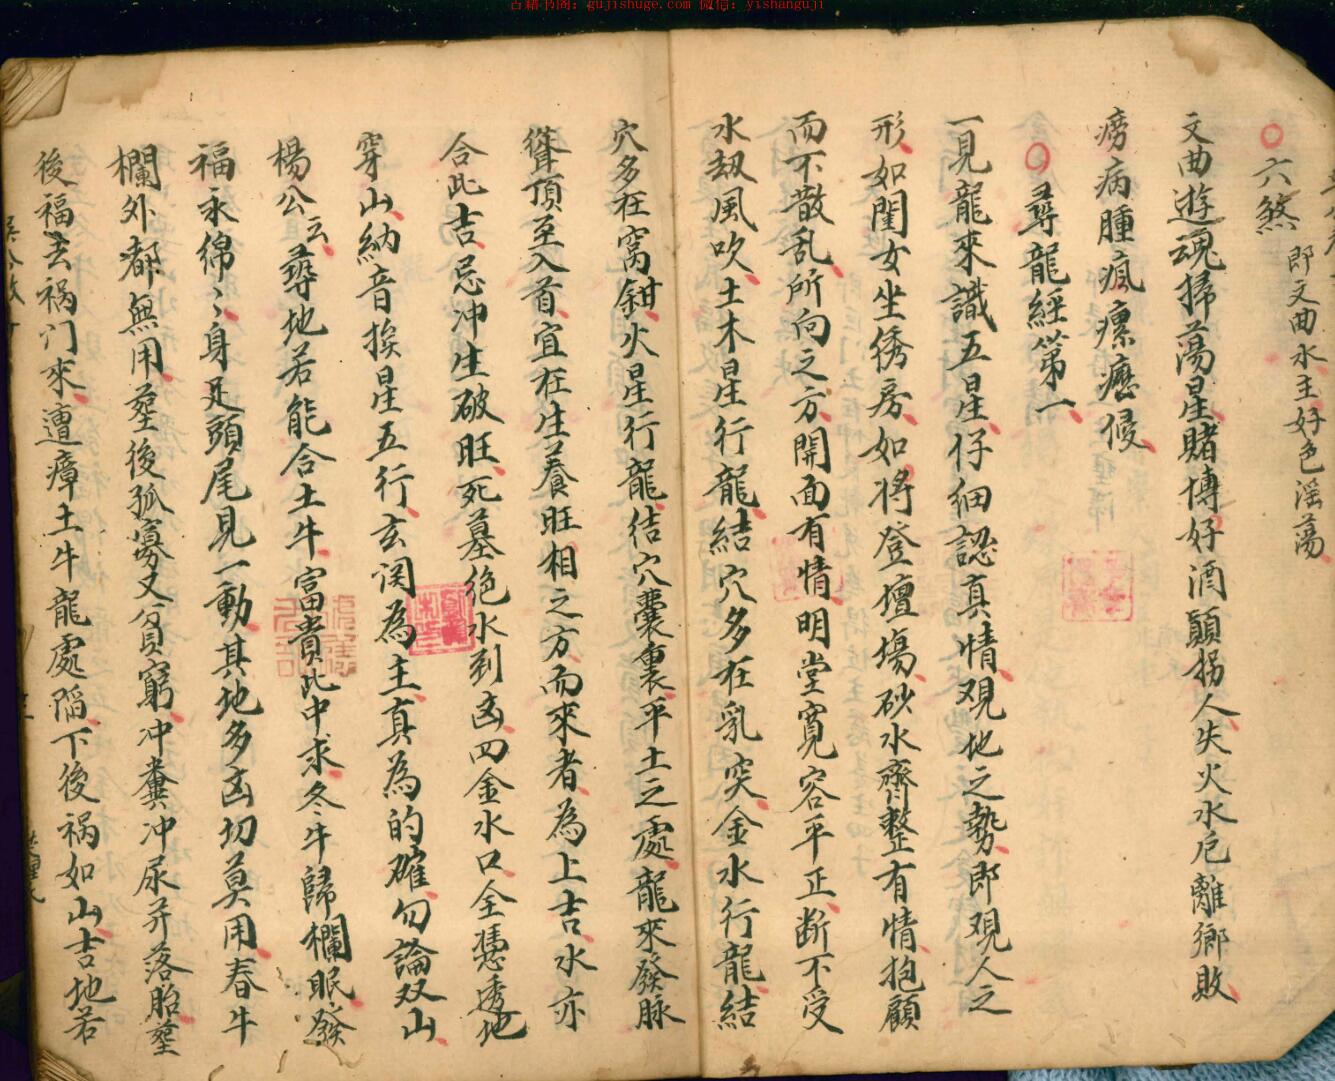 古籍书阁：gujishuge.com 微信：yishanguji
六煞 即文曲水主好色滛蕩
文曲遊魂掃蕩星賭博好酒顛拐人失火水厄離鄉敗
癆病腫瘋瘰癧侵
尋龍經第一
一見龍來識五星仔細認真情观地之勢即观人之
形如閨女坐綉房如將登壇場砂水齊整有情抱顧
而不散乱所向之方開面有情明堂寬容平正断不受
水刼風吹土木星行龍結穴多在乳突金水行龍結
穴多在窩鉗火星行龍结穴囊裏平土之處龍來發脉
聳頂至入首宜在生養旺相之方而來者為上吉水亦
合此吉忌冲生破旺死墓绝水到凶四金水口全憑透地
穿山納音挨星五行玄関為主真為的確勿論双山
楊公云尋地若能合土牛富貴此中求冬牛歸欄眠發
福永綿〻身足頭尾見一動其地多凶切莫用春牛
欄外都無用塟後孤寡又貧窮冲糞冲尿并落胎塟
後福去祸门來遭瘴土牛龍處陷下後祸如山吉地若